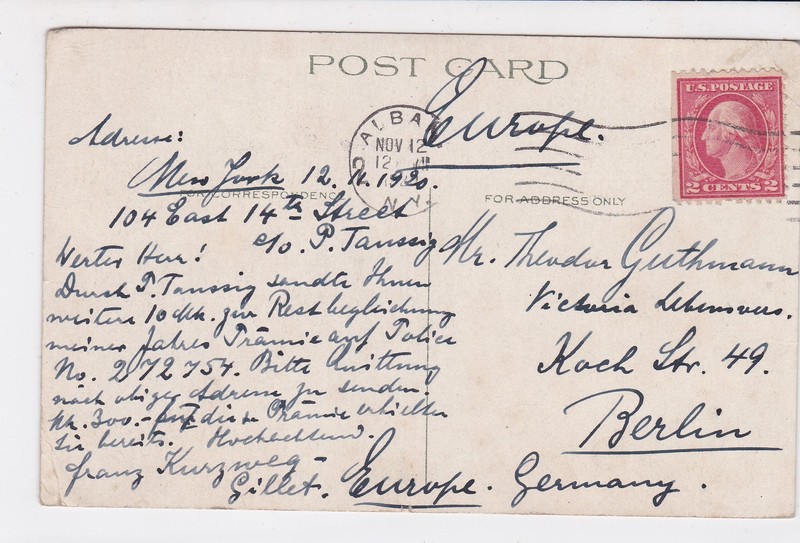 POST CARD
Europe.
ALBA
NOV 12
12
N.Y.
U.S. POSTAGE
2 CENTS 2
Adresse:
New York 12.11.1920.
FOR CORRESPONDENCE
FOR ADDRESS ONLY
104 East 14th Street
c/o. P. Taussig
Werter Herr!
Durch P. Taussig sandte Ihnen
weitere 10 Mk. zur Restbegleichung
meiner Jahres Prämie auf Police
No. 272754. Bitte Quittung
nach obiger Adresse zu senden.
Mk. 300.- auf diese Prämie erhielten
Sie bereits. Hochachtend.
Franz Kurzweg-
Gillet.
Mr. Theodor Guthmann
Victoria Lebensvers.
Koch Str. 49.
Berlin
Europe. Germany.